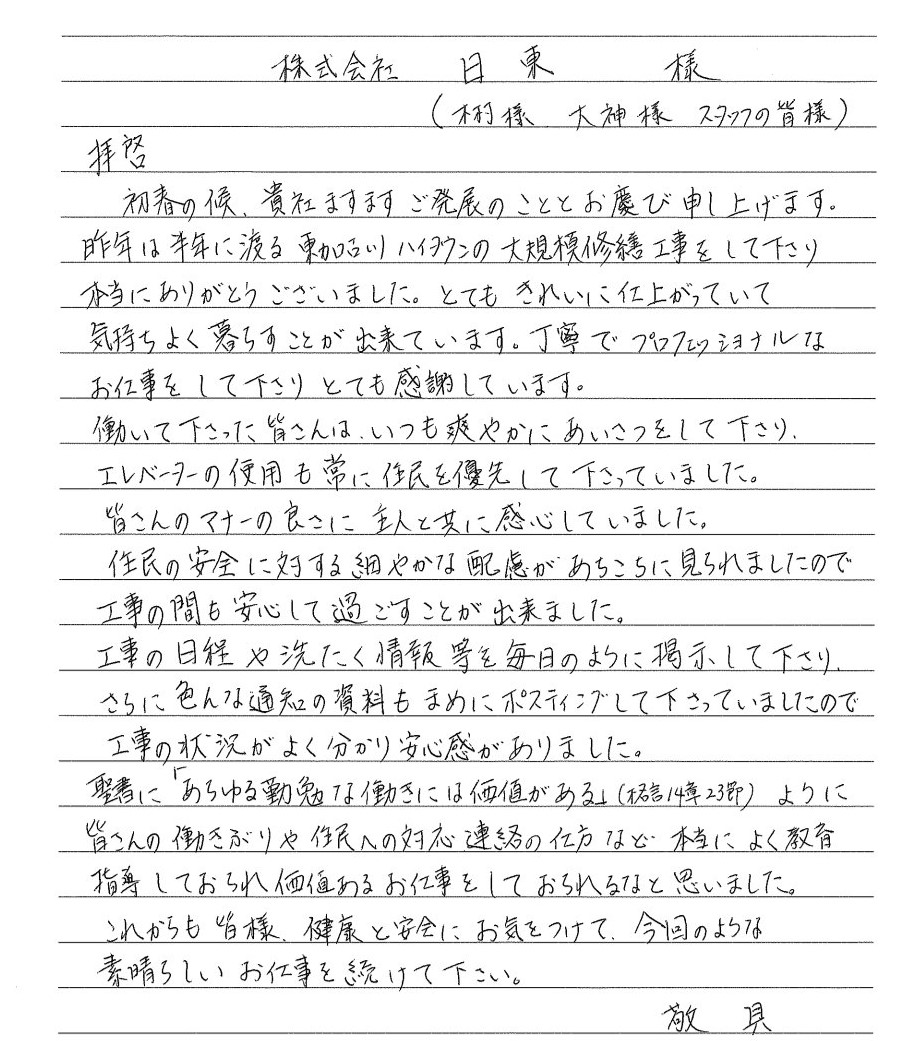 株式会社 日東 様
(木村様 大神様 スタッフの皆様)
拝啓
初春の候、貴社ますますご発展のこととお慶び申し上げます。
昨年は半年に渡る東加古川ハイタウンの大規模修繕工事をして下さり
本当にありがとうございました。とてもきれいに仕上がっていて
気持ちよく暮らすことが出来ています。丁寧でプロフェッショナルな
お仕事をして下さりとても感謝しています。
働いて下さった皆さんは、いつも爽やかにあいさつをして下さり、
エレベーターの使用も常に住民を優先して下さっていました。
皆さんのマナーの良さに主人と共に感心していました。
住民の安全に対する細やかな配慮があちこちに見られましたので
工事の間も安心して過ごすことが出来ました。
工事の日程や洗たく情報等を毎日のように掲示して下さり、
さらに色んな通知の資料もまめにポスティングして下さっていましたので
工事の状況がよく分かり安心感がありました。
聖書に「あらゆる勤勉な働きには価値がある」(格言14章23節)ように
皆さんの働きぶりや住民への対応連絡の仕方など本当によく教育
指導しておられ価値あるお仕事をしておられるなと思いました。
これからも皆様、健康と安全にお気をつけて、今回のような
素晴らしいお仕事を続けて下さい。
敬具